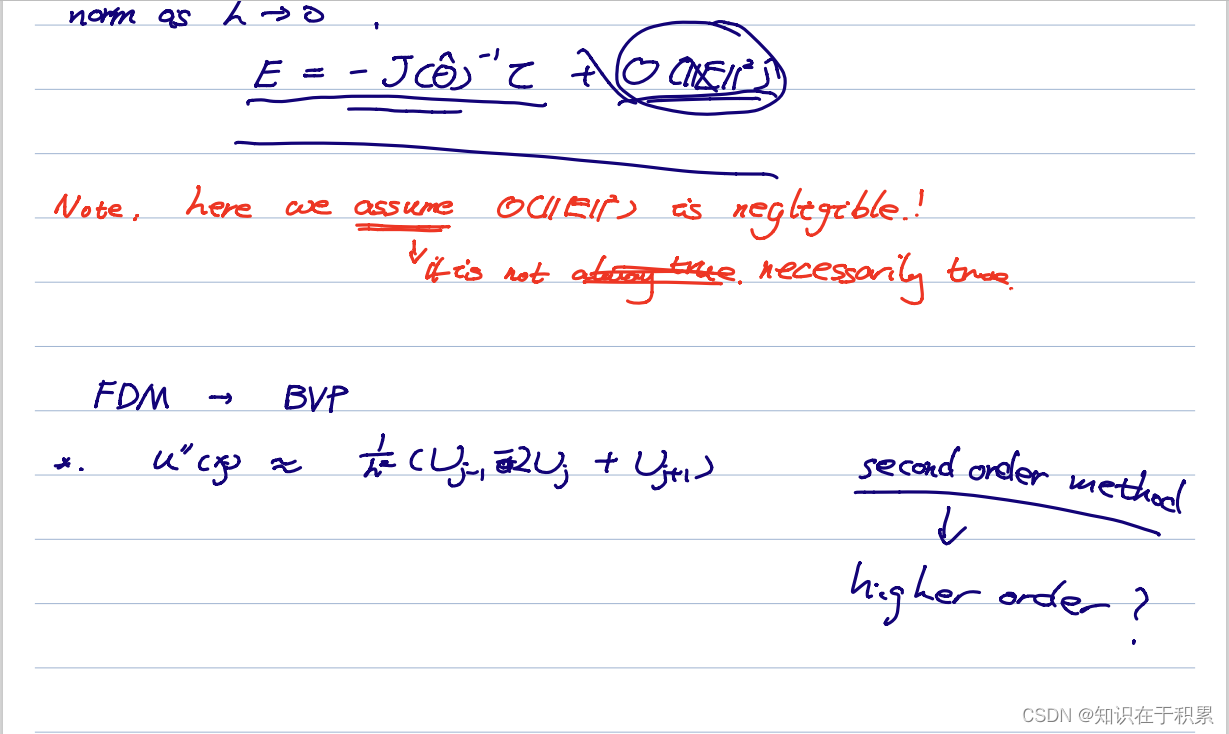 norm as h → 0 .
E = - J(θ̂)⁻¹ τ + O(||E||²)
Note. here we assume O(||E||²) is neglegible.!
it is not necessarily true.
FDM → BVP
*. u''(xⱼ) ≈ 1/h² (Uⱼ₋₁ - 2Uⱼ + Uⱼ₊₁)
second order method
↓
higher order ?
CSDN @知识在于积累